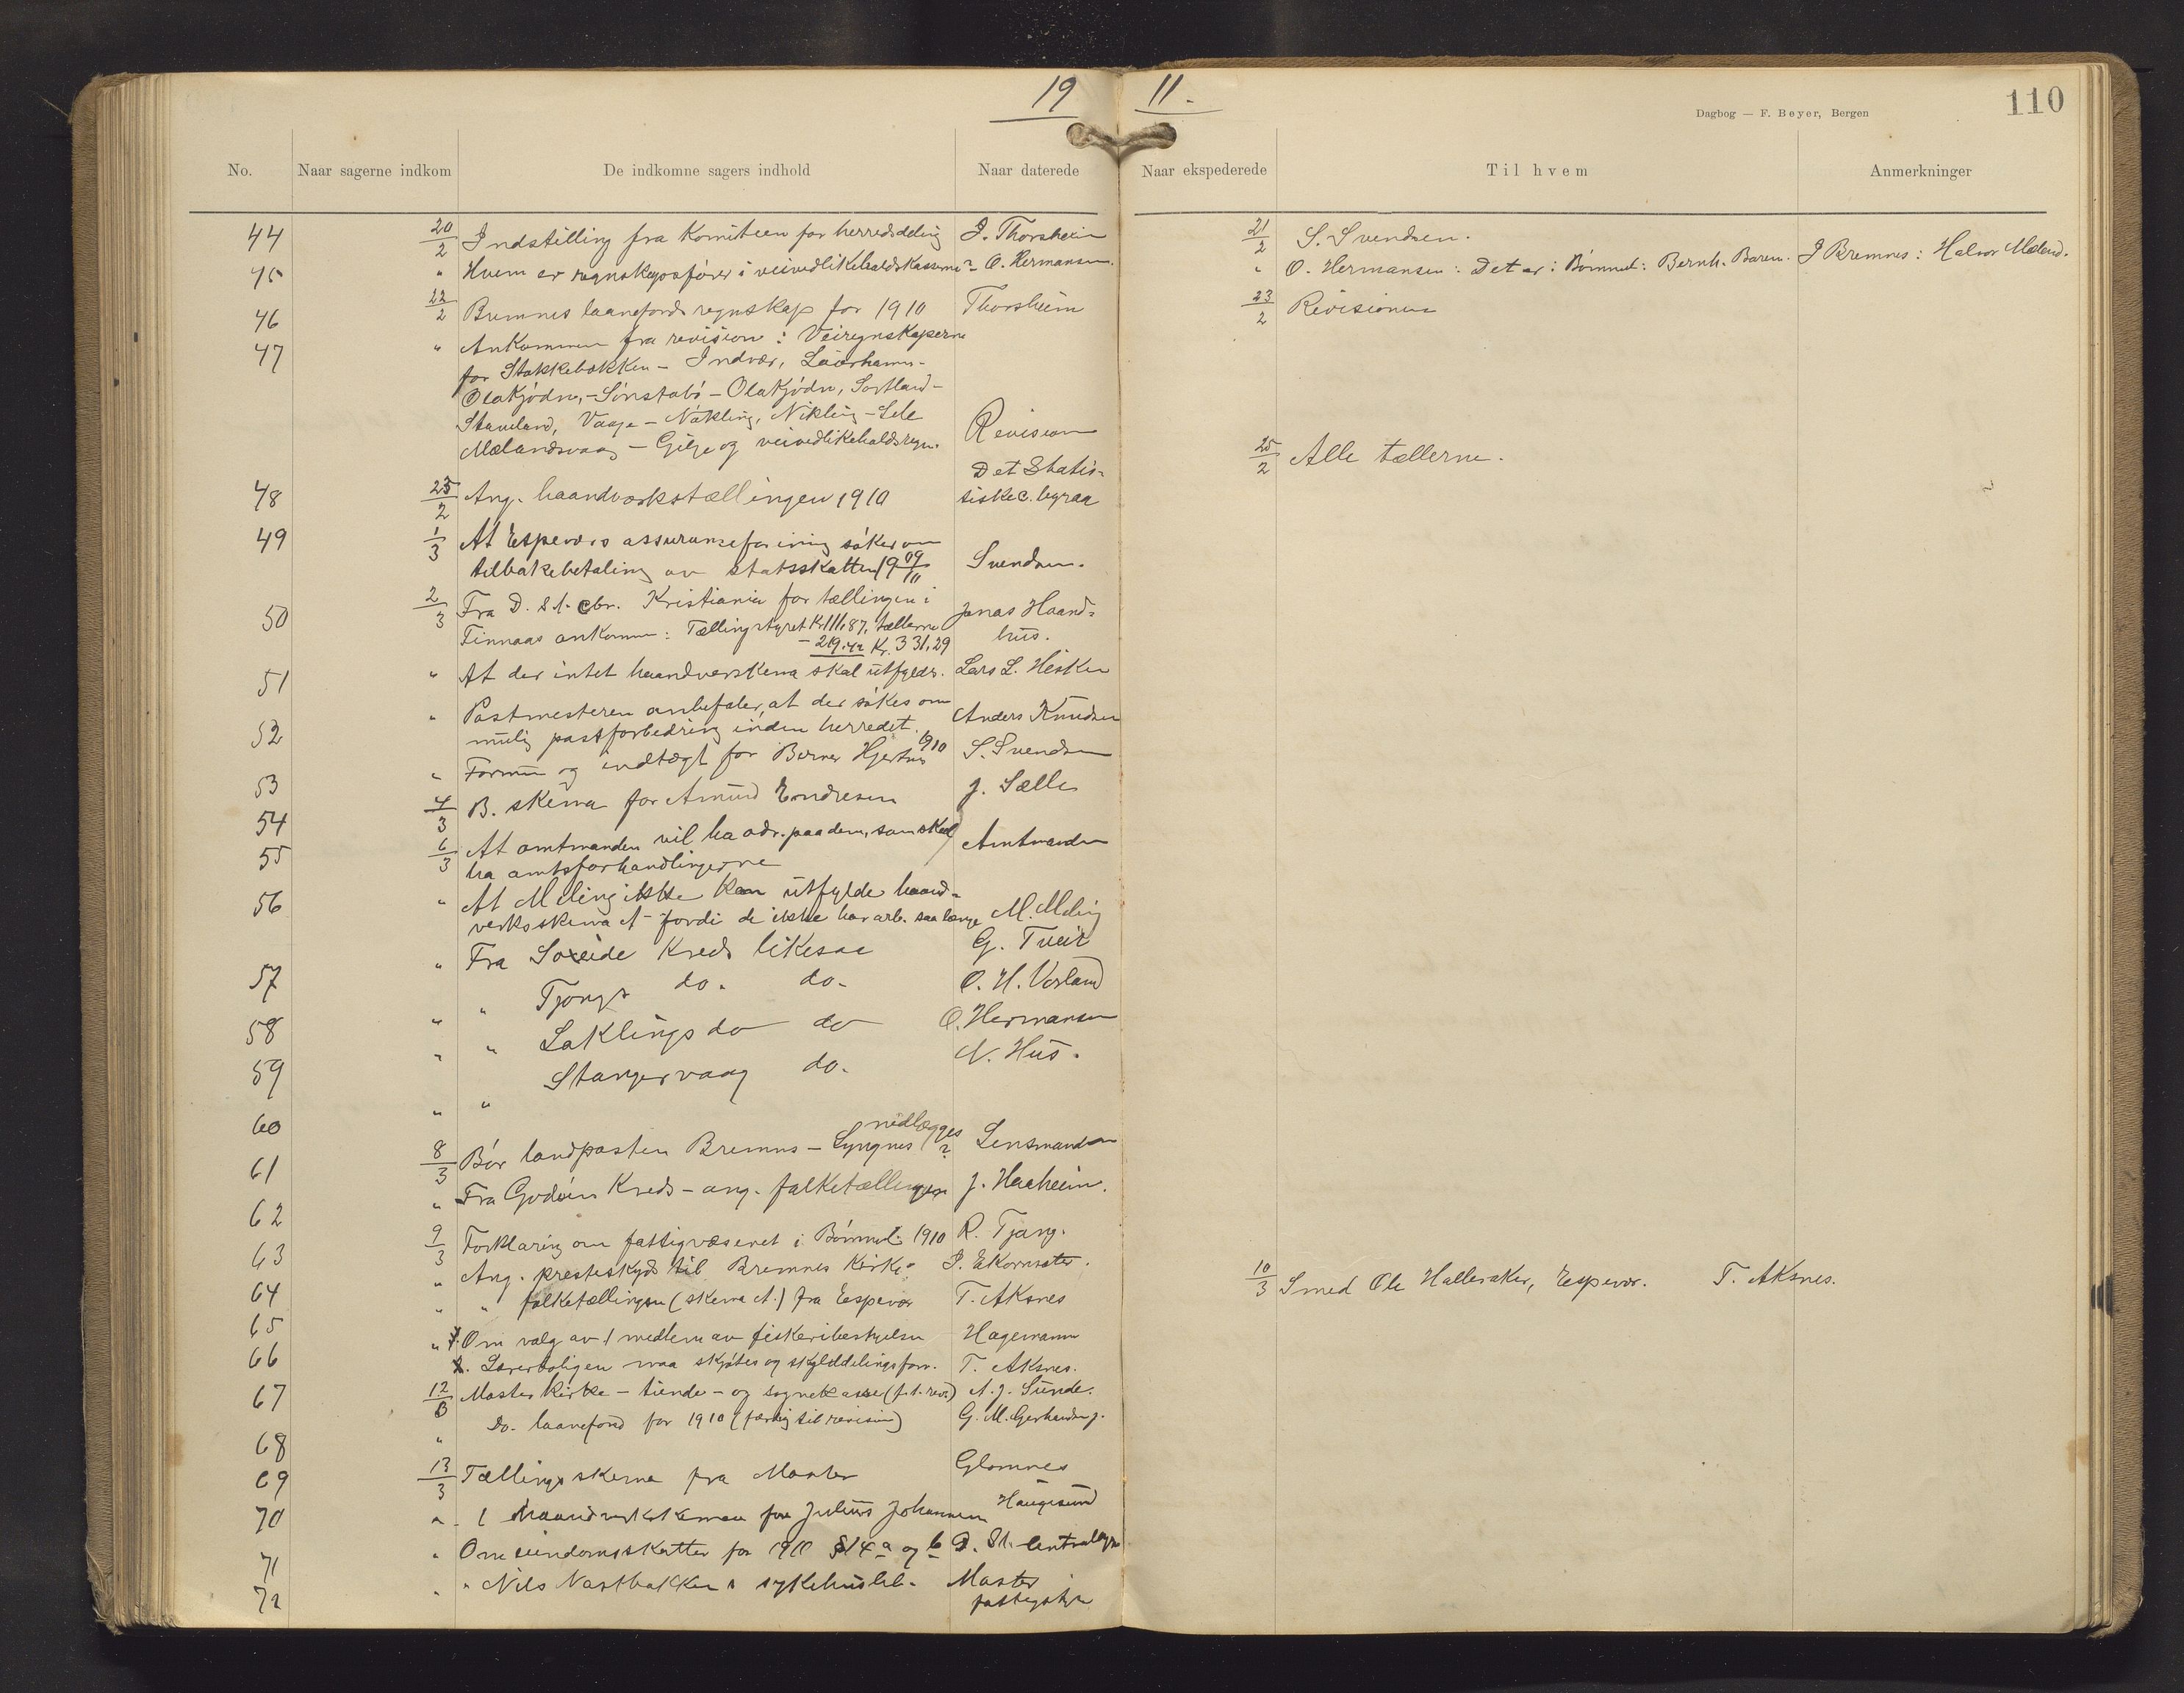 19 11.
Dagbog — F. Beyer, Bergen
110
No. Naar sagerne indkom De indkomne sagers indhold Naar daterede Naar ekspederede Til hvem Anmerkninger
44 20/2 Indstilling fra Komiteen for herredsdeling J. Thorsheim 21/2 S. Svendsen.
45 " Hvem er regnskapsfører i veivedlikeholdskasserne? O. Hermansen. " O. Hermansen: Det er: Bømmel: Bernh. Baren. I Bremnes: Halvor Mæland.
46 22/2 Bremnes laanefonds regnskap for 1910 Thorsheim 23/2 Revisionen
47 " Ankommen fra revision: Veiregnskaperne
for Stokkebækken - Indvær, Laurhamn-
Olakjødn, - Sønstabø - Olakjødn, Sortland-
Stavland, Vaage - Nækling, Nikling - Lele
Mælandsvaag - Gilje og veivedlikeholdsregn. Revisionen
25/2 Alle tællerne.
48 25/2 Ang. haandverkstællingen 1910 Det Statis-
tiske c. byraa
49 1/3 At Espeværs assuranseforening søker om
tilbakebetaling av statsskatten 1909/11 Svendsen.
50 2/3 Fra D. st. cbr. Kristiania for tællingen i Jonas Haand-
Finnaas ankommen: Tællingstyret Kr. 111,87, tællerne hus.
- 219.42 Kr. 331,29
51 " At der intet haandverskema skal utfyldes. Lars L. Hisken
52 " Postmesteren anbefaler, at der søkes om
mulig postforbedring inden herredet. Anders Knudsen
53 " Formue og indtægt for Berner Hjertnes 1910 S. Svendsen
54 4/3 B. skema for Amund Endresen J. Sælle
55 6/3 At amtmanden vil ha adr. paa dem, som skal
ha amtsforhandlingerne Amtmanden
56 " At Meling ikke kan utfylde haand-
verksskema A fordi de ikke har arb. saa længe M. Meling
57 " Fra Soxeide Kreds likesaa G. Tveit
58 " " Tjongs do. do. O. H. Vorland
59 " " Laklings do do O. Hermansen
60 " " Stangervaag do. N. Hus.
61 8/3 Bør landposten Bremnes - Lyngnes nedlægges? Lensmanden
62 " Fra Godøens Kreds - ang. folketællingen J. Haaheim.
63 9/3 Forklaring om fattigvæsenet i Bømmel 1910 R. Tjong.
64 " Ang. presteskyds til Bremnes Kirke I. Ekornsæter.
65 " " folketællingen (skema A.) fra Espevær T. Aksnes 10/3 Smed Ole Halleraker, Espevær. T. Aksnes.
66 " Om valg av 1 medlem av fiskeribestyrelsen Hagemann
Lærerboligen maa skjøtes og skylddelingsforr. T. Aksnes.
67 12/3 Moster kirke - tiende - og sognekasse (f. t. rev.) A. J. Sunde.
68 " Do. laanefond for 1910 (færdig til revision)
69 13/3 Tællingsskema fra Moster Glomnes
70 " 1 haandverkskema fra Julius Johannesen Haugesund
71 " Om eiendomsskatter for 1910 §14 a og b D. St. Centralbyr.
72 " " Nils Nastbakken s sykehushl. Moster
fattigstyre